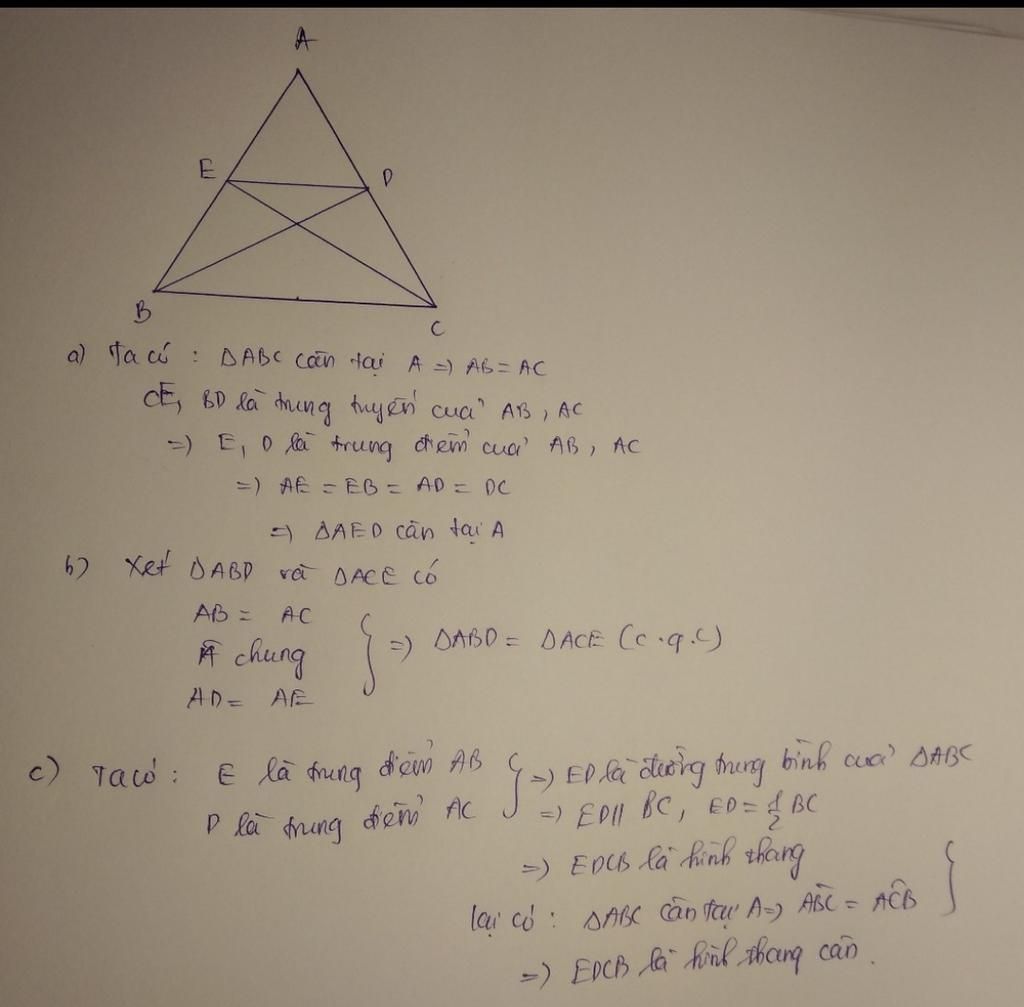 A
E
D
B
C
a) Ta có : ΔABC cân tại A => AB = AC
CE, BD là trung tuyến của AB, AC
=> E, D là trung điểm của AB, AC
=> AE = EB = AD = DC
=> ΔAED cân tại A
b) Xét ΔABD và ΔACE có
AB = AC
Â chung
AD = AE
} => ΔABD = ΔACE (c.g.c)
c) Ta có : E là trung điểm AB
D là trung điểm AC
} => ED là đường trung bình của ΔABC
=> ED // BC, ED = 1/2 BC
=> EDCB là hình thang
lại có : ΔABC cân tại A => AB̂C = AĈB }
=> EDCB là hình thang cân.